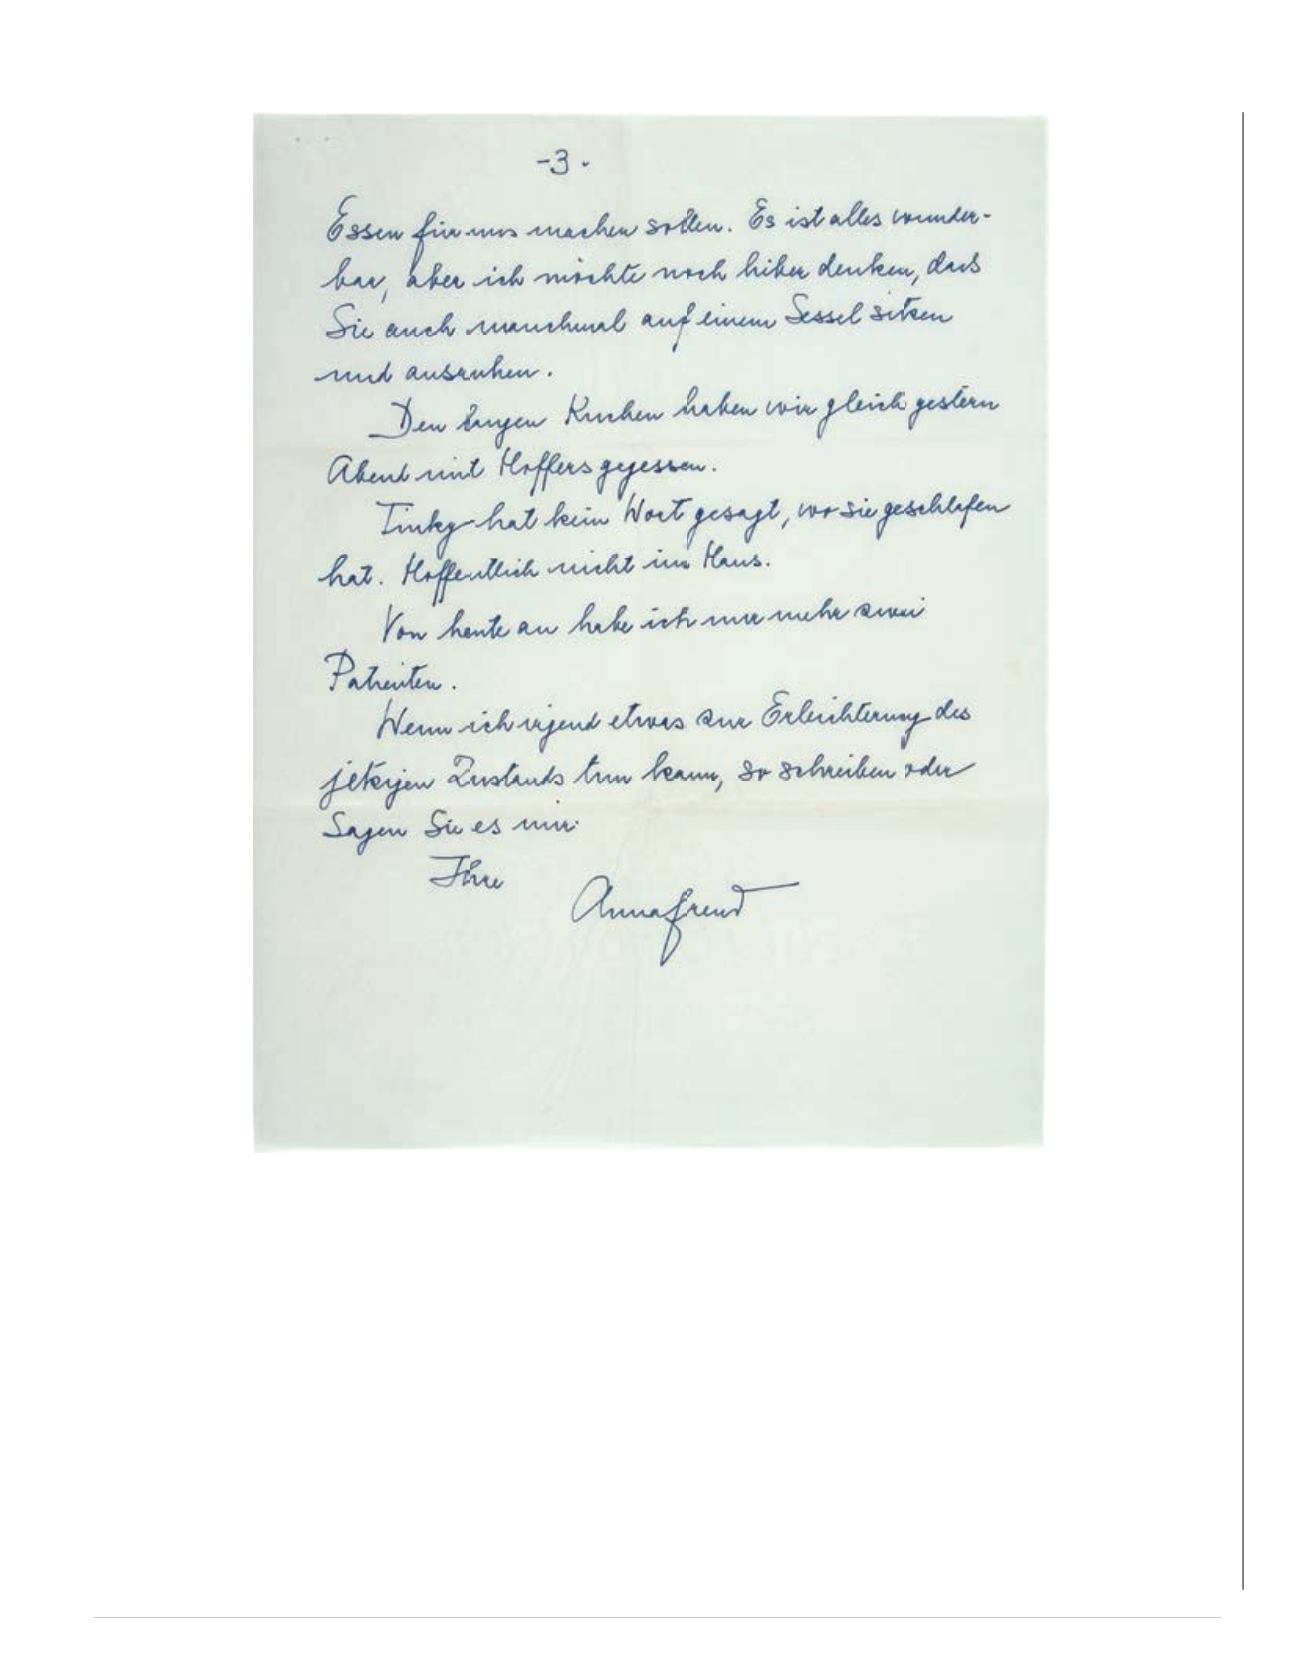 -3-
Essen für uns machen sollen. Es ist alles wunder-
bar, aber ich möchte noch lieber denken, dass
Sie auch manchmal auf einem Sessel sitzen
und ausruhen.
Den Kuchen haben wir gleich gestern
Abend mit Hoffers gegessen.
Tinky hat kein Wort gesagt, wo sie geschlafen
hat. Hoffentlich nicht im Haus.
Von heute an habe ich nur mehr zwei
Patienten.
Wenn ich irgend etwas zur Erleichterung des
jetzigen Zustands tun kann, so schreiben oder
sagen Sie es mir.
Ihre
Anna Freud